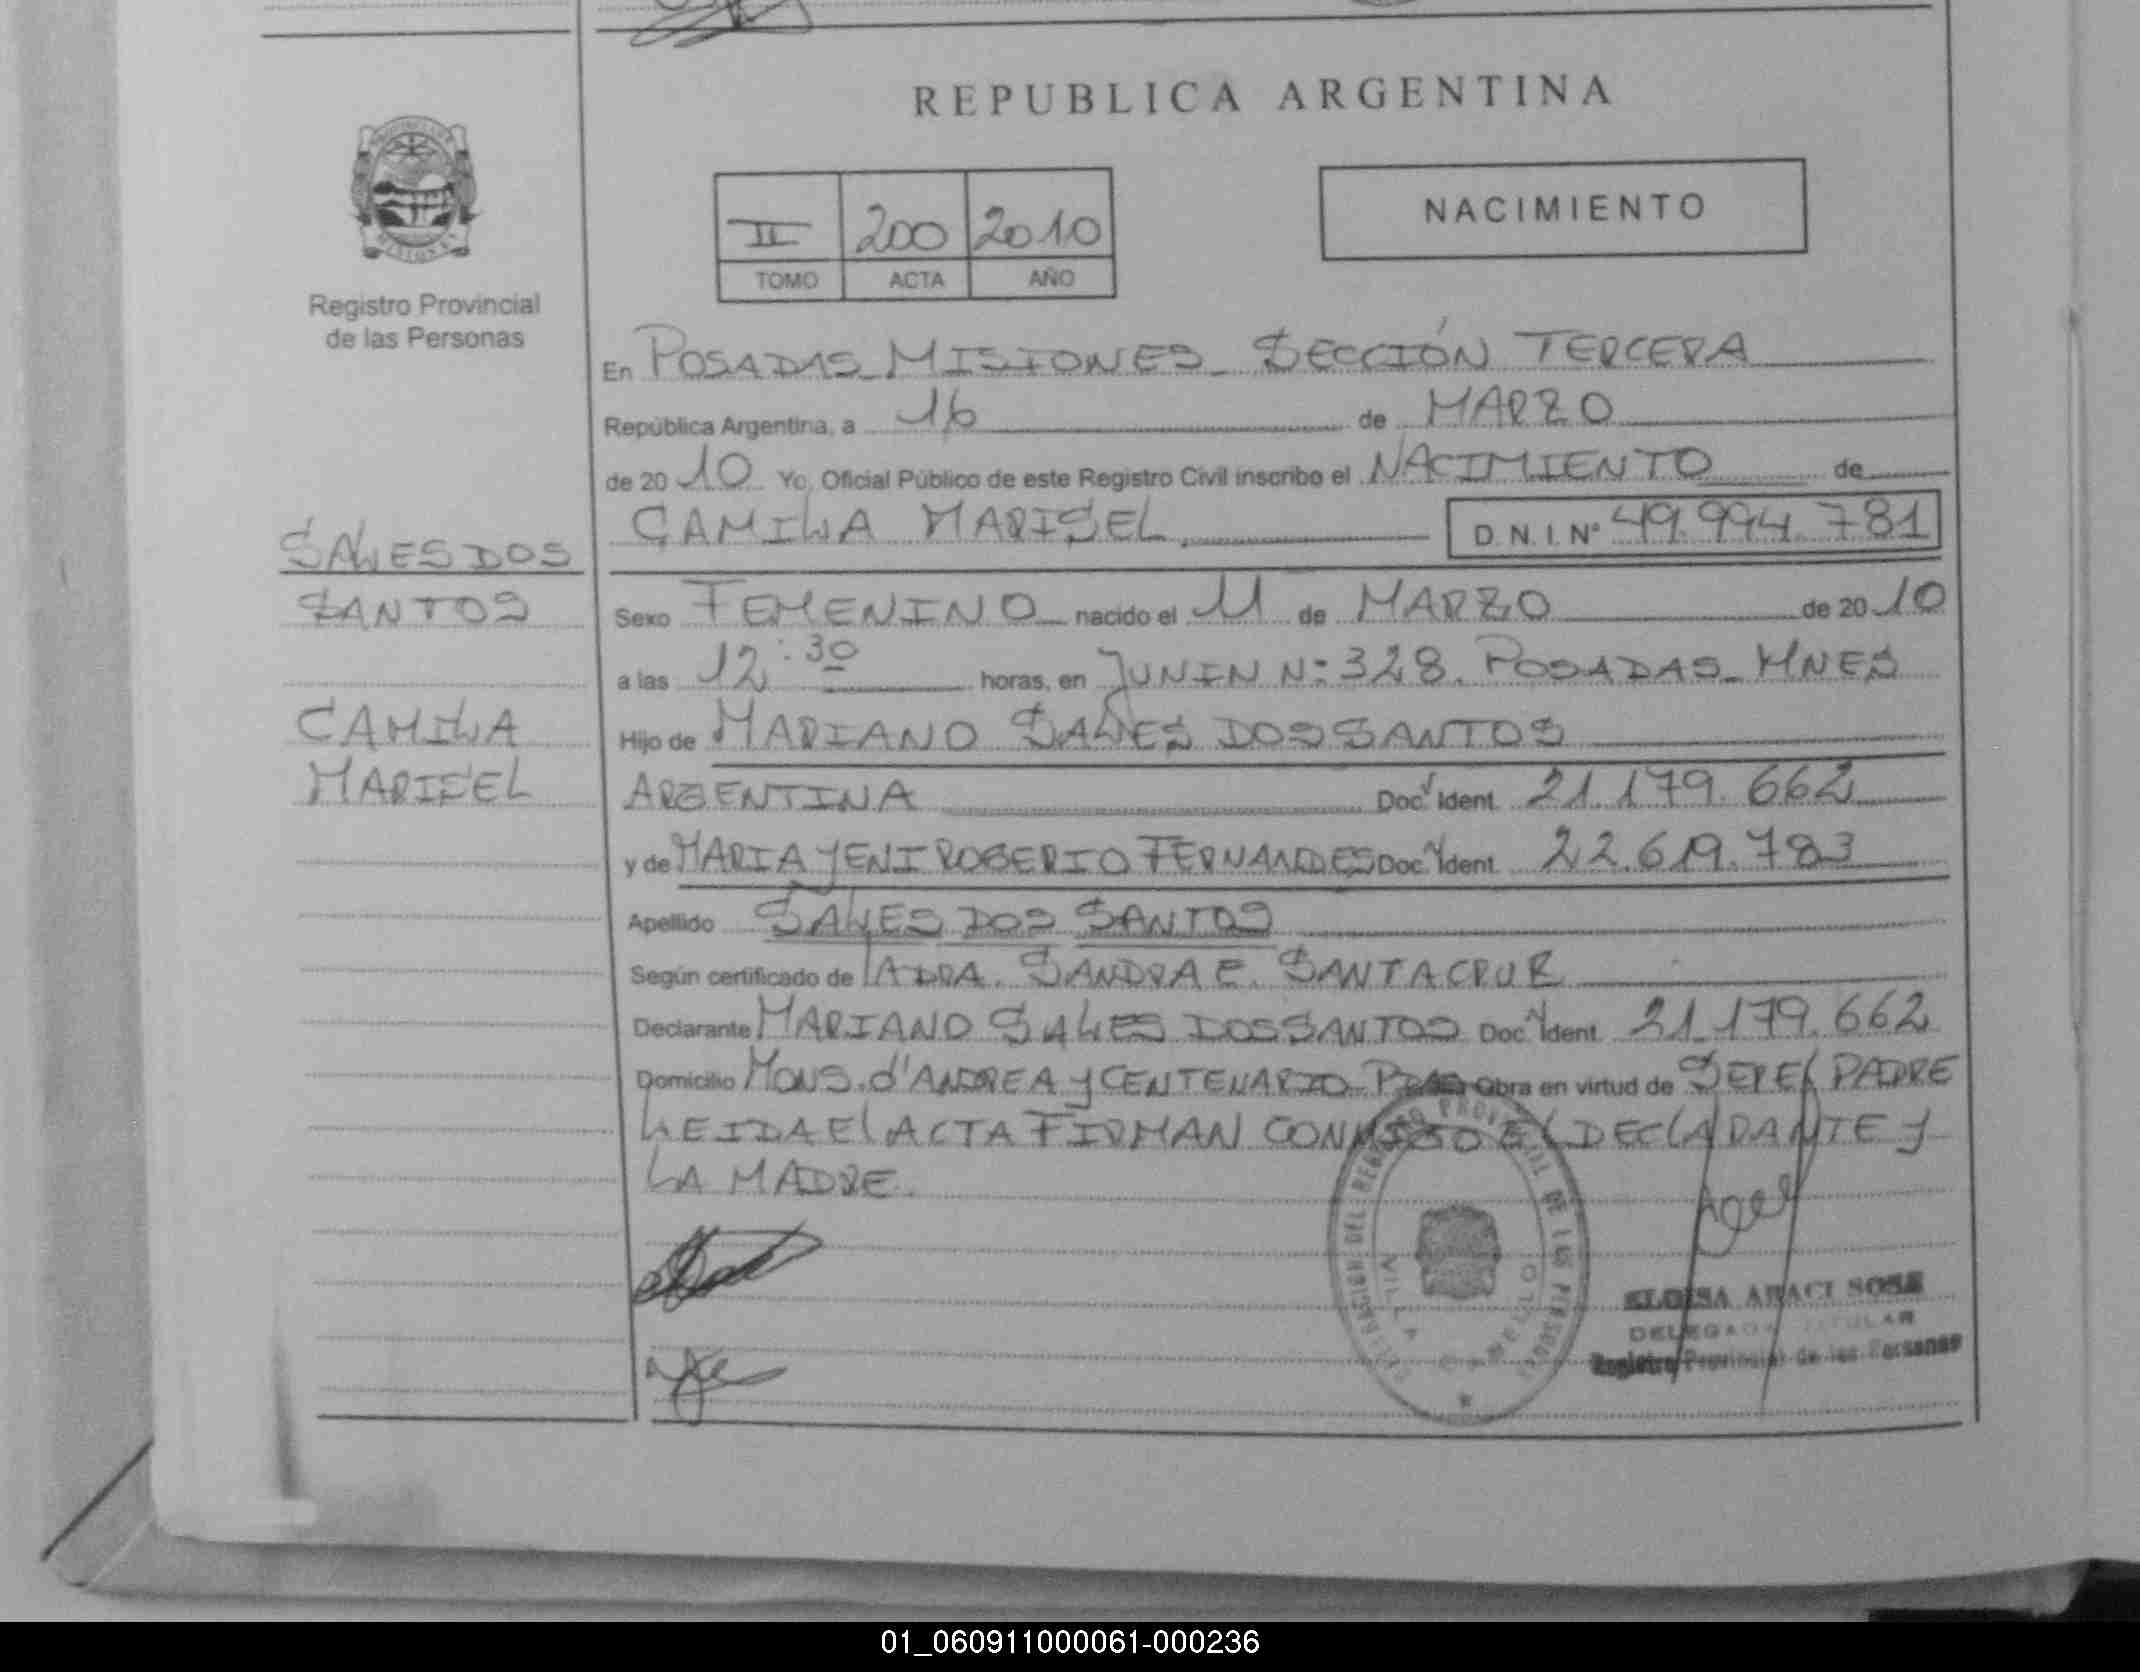 REPUBLICA ARGENTINA
II 200 2010
TOMO ACTA AÑO
NACIMIENTO
Registro Provincial
de las Personas
SALES DOS
SANTOS
CAMILA
MARISEL
En POSADAS_MISIONES_SECCIÓN TERCERA
República Argentina, a 16 de MARZO
de 2010 Yo, Oficial Público de este Registro Civil inscribo el NACIMIENTO de
CAMILA MARISEL. D.N.I.Nº 49.994.781
Sexo FEMENINO nacido el 11 de MARZO de 2010
a las 12:30 horas, en JUNIN N:328. POSADAS_MNES
Hijo de MARIANO SALES DOS SANTOS
ARGENTINA Doc. Ident. 21.179.662
y de MARIA YENI ROBERIO FERNANDES Doc. Ident. 22.619.783
Apellido SALES DOS SANTOS
Según certificado de LA DRA. SANDRA E. SANTACRUZ
Declarante MARIANO SALES DOS SANTOS Doc. Ident. 21.179.662
Domicilio MONS. d'ANDREA Y CENTENARIO Obra en virtud de SER EL PADRE
LEIDA El ACTA FIRMAN CONMIGO El DEClARANTE Y
LA MADRE.
VILLA CABELLO
ELOISA ARACI SOSA
DELEGADA TITULAR
Registro Provincial de las Personas
01_060911000061-000236